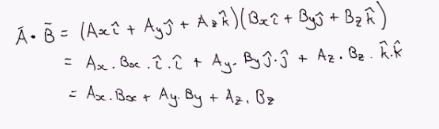 Ā · B̄ = (Axî + Ayĵ + Azk̂)(Bxî + Byĵ + Bzk̂)
= Ax . Bx . î . î + Ay . By ĵ . ĵ + Az . Bz . k̂ . k̂
= Ax . Bx + Ay . By + Az . Bz